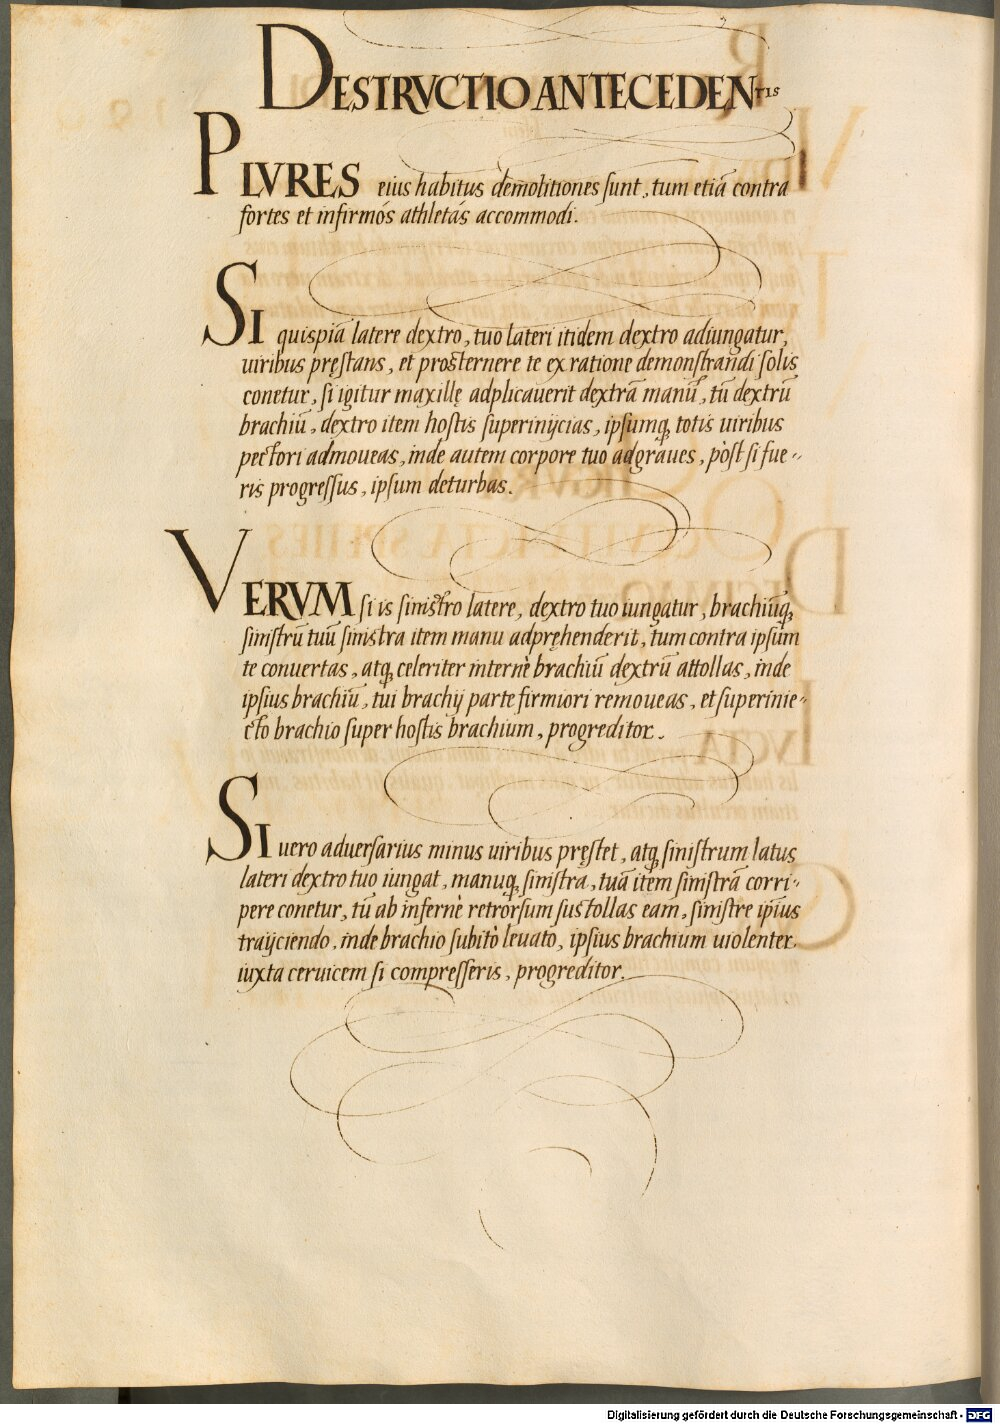 DESTRVCTIO ANTECEDENTIS
PLVRES eius habitus demolitiones sunt, tum etiā contra
fortes et infirmos athletas accommodi.
SI quispiā latere dextro, tuo lateri itidem dextro adiungatur,
uiribus pręstans, et prosternere te ex ratione demonstrandi solis
conetur, si igitur maxillę adplicauerit dextrā manū, tū dextrū
brachiū, dextro item hostis superinijcias, ipsumq; totis uiribus
pectori admoueas, inde autem corpore tuo adgraues, pòst si fue-
ris progressus, ipsum deturbas.
VERVM si is sinistro latere, dextro tuo iungatur, brachiūq;
sinistrū tuū sinistra item manu adpręhenderit, tum contra ipsum
te conuertas, atq; celeriter internè brachiū dextrū attollas, inde
ipsius brachiū, tui brachij parte firmiori remoueas, et superinie-
cto brachio super hostis brachium, progreditor.
SI uero aduersarius minus uiribus pręstet, atq; sinistrum latus
lateri dextro tuo iungat, manuq; sinistra, tuā item sinistrā corri-
pere conetur, tū ab infernè retrorsum sustollas eam, sinistre ipīus
traijciendo, inde brachio subitò leuato, ipsius brachium uiolenter
iuxta ceruicem si compresseris, progreditor.
Digitalisierung gefördert durch die Deutsche Forschungsgemeinschaft - DFG